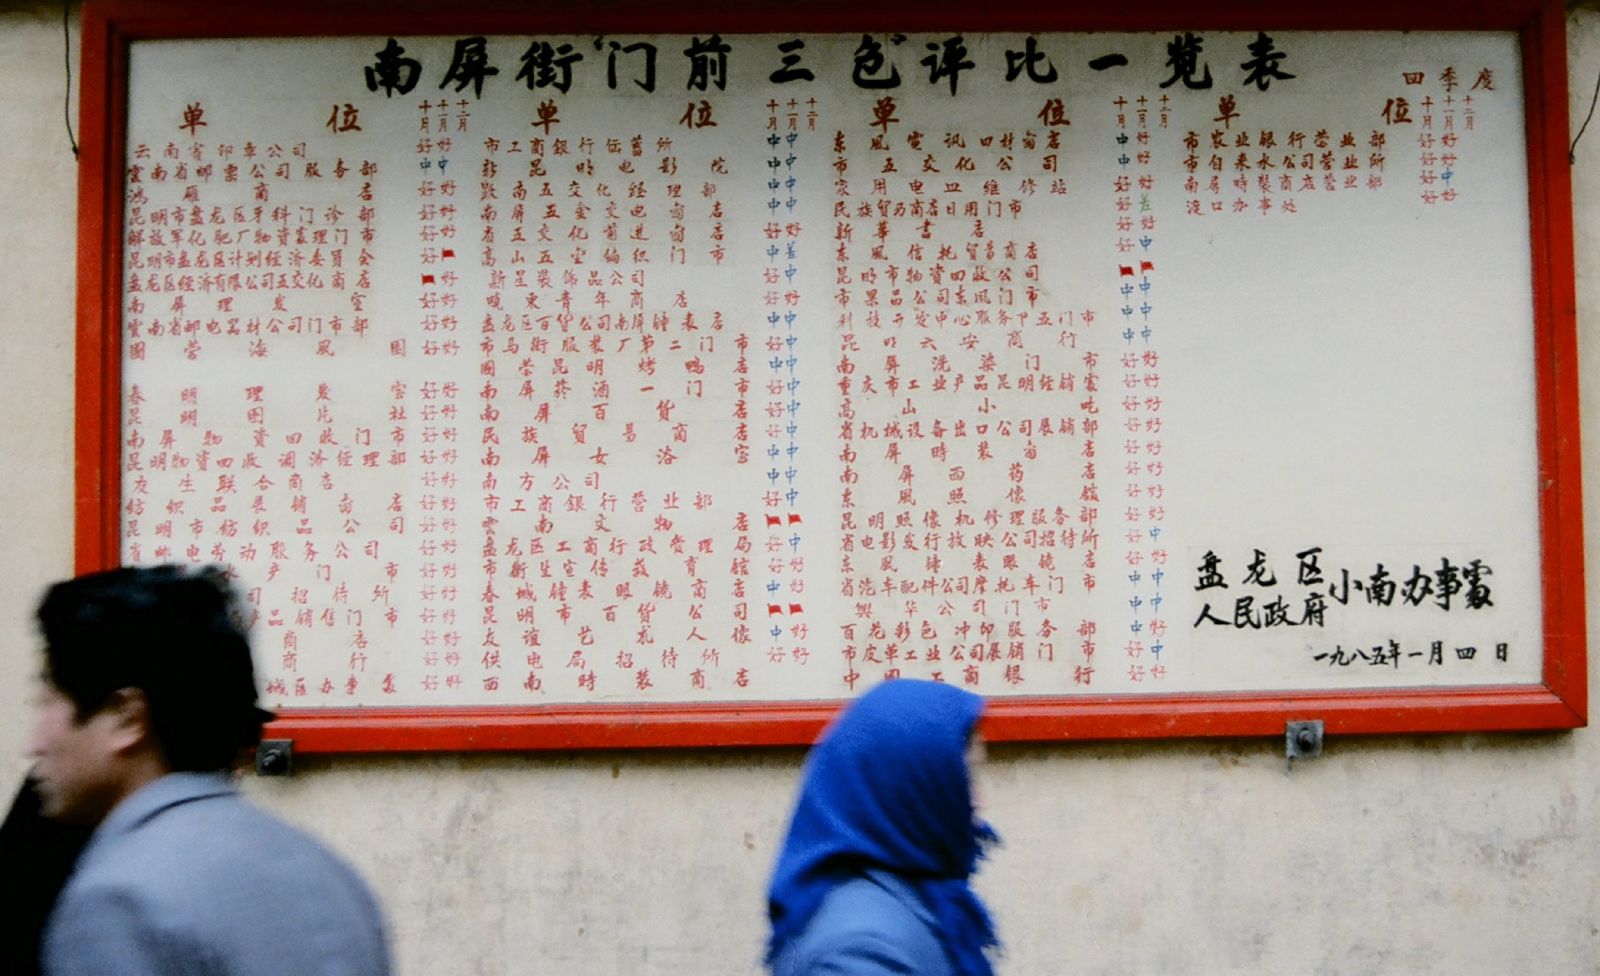 南屏街“门前三包”评比一览表
四季度
单位 十月 十一月 十二月
云南省印章公司 好 好
雲南省邮票公司服务部 中 中
鸿雁商店 好 好
昆明市盘龙区牙科门诊部 好 好
解放军化肥厂物資處理门市 好 好
昆明市盘龙区计划经济委员会 好
盘龙区经济有限公司五交化商店 好
南屏理发室 好 好
雲南省邮电器材公司门市部 好 好
國营海風园 好 好
春明理发室 好 好
昆明图片社 好 好
南屏物資回收门市 好 好
昆明物資回收调济经理部 好 好
友生联合商店 好 好
纺织品展销商店 好 好
昆明市纺织品公司 好 好
省邮电劳动服务公司 好 好
水产门市 好 好
司招待所 好 好
产品销售门市 好 好
商店 好 好
商行 好 好
城区办事处 好 好
单位 十月 十一月 十二月
市工商銀行储蓄所 中 中
新昆明电影院 中 中
南五交化经理部 中 中
南屏五金交电商店 中 中
省五交化前进商店 好 好
高山五宝编织门市 好 差
新星装饰品公司 好 中
晓东青年商店 好 好
盘龙区百货公司南屏鐘表店 中 中
市马街服装厂第二门市 好 中
國营昆明烤鸭店 中 中
南屏菸酒一门市 好 中
南屏百貨店 好 中
民族贸易商店 好 中
南屏女浴室 中 中
南方公司 中 中
市工商銀行营业部 好 中
雲南文物店
盘龙区工商行政管理局 好 中
市衛生宣传教育館 中 好
春城鐘表眼镜商店 中 好
昆明市百貨公司
友谊艺术人像 中 好
供电局招待所 好 好
西南時装商店
单位 十月 十一月 十二月
东風電讯器材商店 中 好
市五交化公司 中 好
家用电器维修站 好 好
民族贸易商店日用门市 好 差
新華書店 好 好
东風信托贸易商店 好 中
昆明市物資回收公司
市果品公司东風门市 中 中
科技开发中心服务部五门市 中 中
昆明六安商行 中 中
南屏洗染门市 好 好
重庆市工业产品昆明经销處 好 好
高山小吃 好 好
省机械设备出口公司展销部 好 好
南屏時装商店 好 好
南屏西药店 好 好
东風照像館 好 好
昆明照像机修理服务部 好 好
省电影发行放映公司招待所 好 中
东風鐘表眼镜店 好 好
省汽车配件公司摩托车门市 中 中
興华公司门市 中 中
百花彩色冲印服务部 中 好
市皮革工业公司展销门市 好 中
中国工商銀行 好 好
单位 十月 十一月 十二月
市农业銀行营业部 好 好
市自来水公司营业所 好 好
南屏時裝商店营业部 好 中
渡口办事处 好 好
盘龙区人民政府小南办事處
一九八五年一月四日